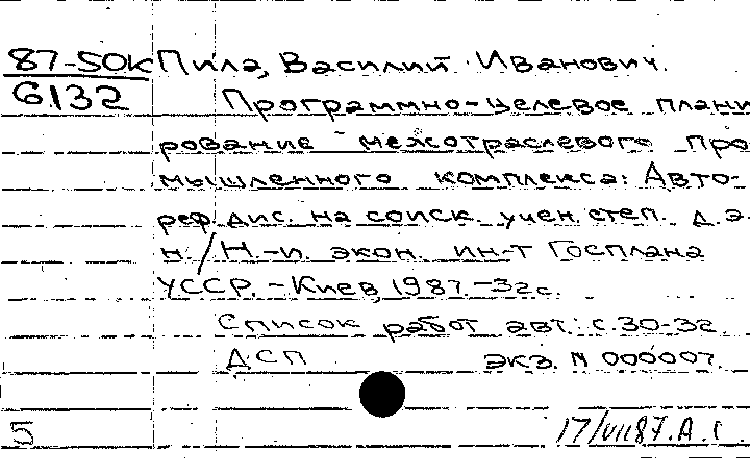 87-50к Пила, Василий Иванович.
6132 Программно-целевое плани
рование межотраслевого про
мышленного комплекса: Авто-
реф. дис. на соиск. учен. степ. д. э.
н. / Н.-и. экон. ин-т Госплана
УССР. - Киев, 1987. - 32 с.
Список работ авт.: с. 30-32
ДСП экз. N 000007.
5 17/VII87.